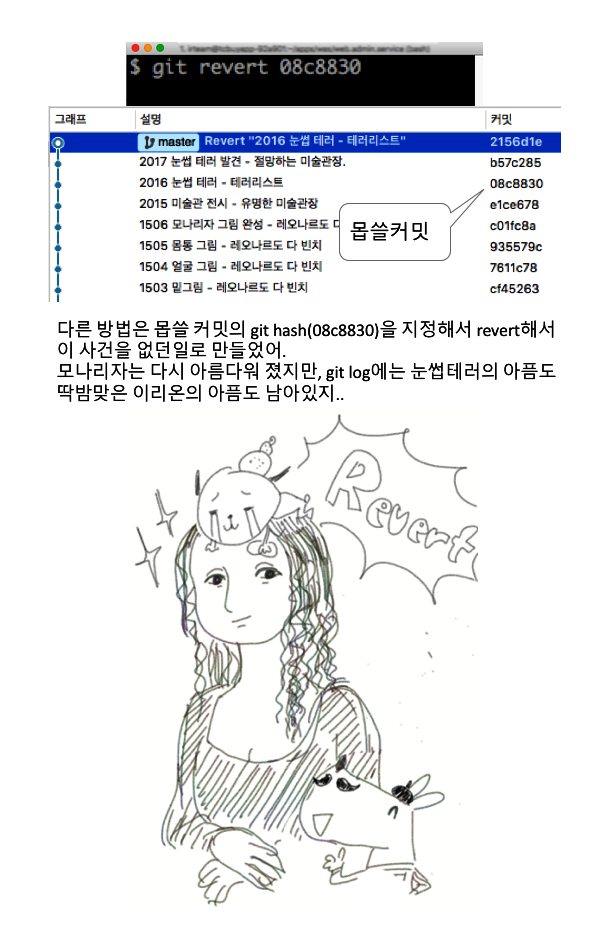 $ git revert 08c8830
그래프 설명 커밋
master Revert "2016 눈썹 테러 - 테러리스트" 2156d1e
2017 눈썹 테러 발견 - 절망하는 미술관장. b57c285
2016 눈썹 테러 - 테러리스트 08c8830
2015 미술관 전시 - 유명한 미술관장 e1ce678
1506 모나리자 그림 완성 - 레오나르도 다 c01fc8a
몹쓸커밋
1505 몸통 그림 - 레오나르도 다 빈치 935579c
1504 얼굴 그림 - 레오나르도 다 빈치 7611c78
1503 밑그림 - 레오나르도 다 빈치 cf45263
다른 방법은 몹쓸 커밋의 git hash(08c8830)을 지정해서 revert해서
이 사건을 없던일로 만들었어.
모나리자는 다시 아름다워 졌지만, git log에는 눈썹테러의 아픔도
딱밤맞은 이리온의 아픔도 남아있지..
Revert